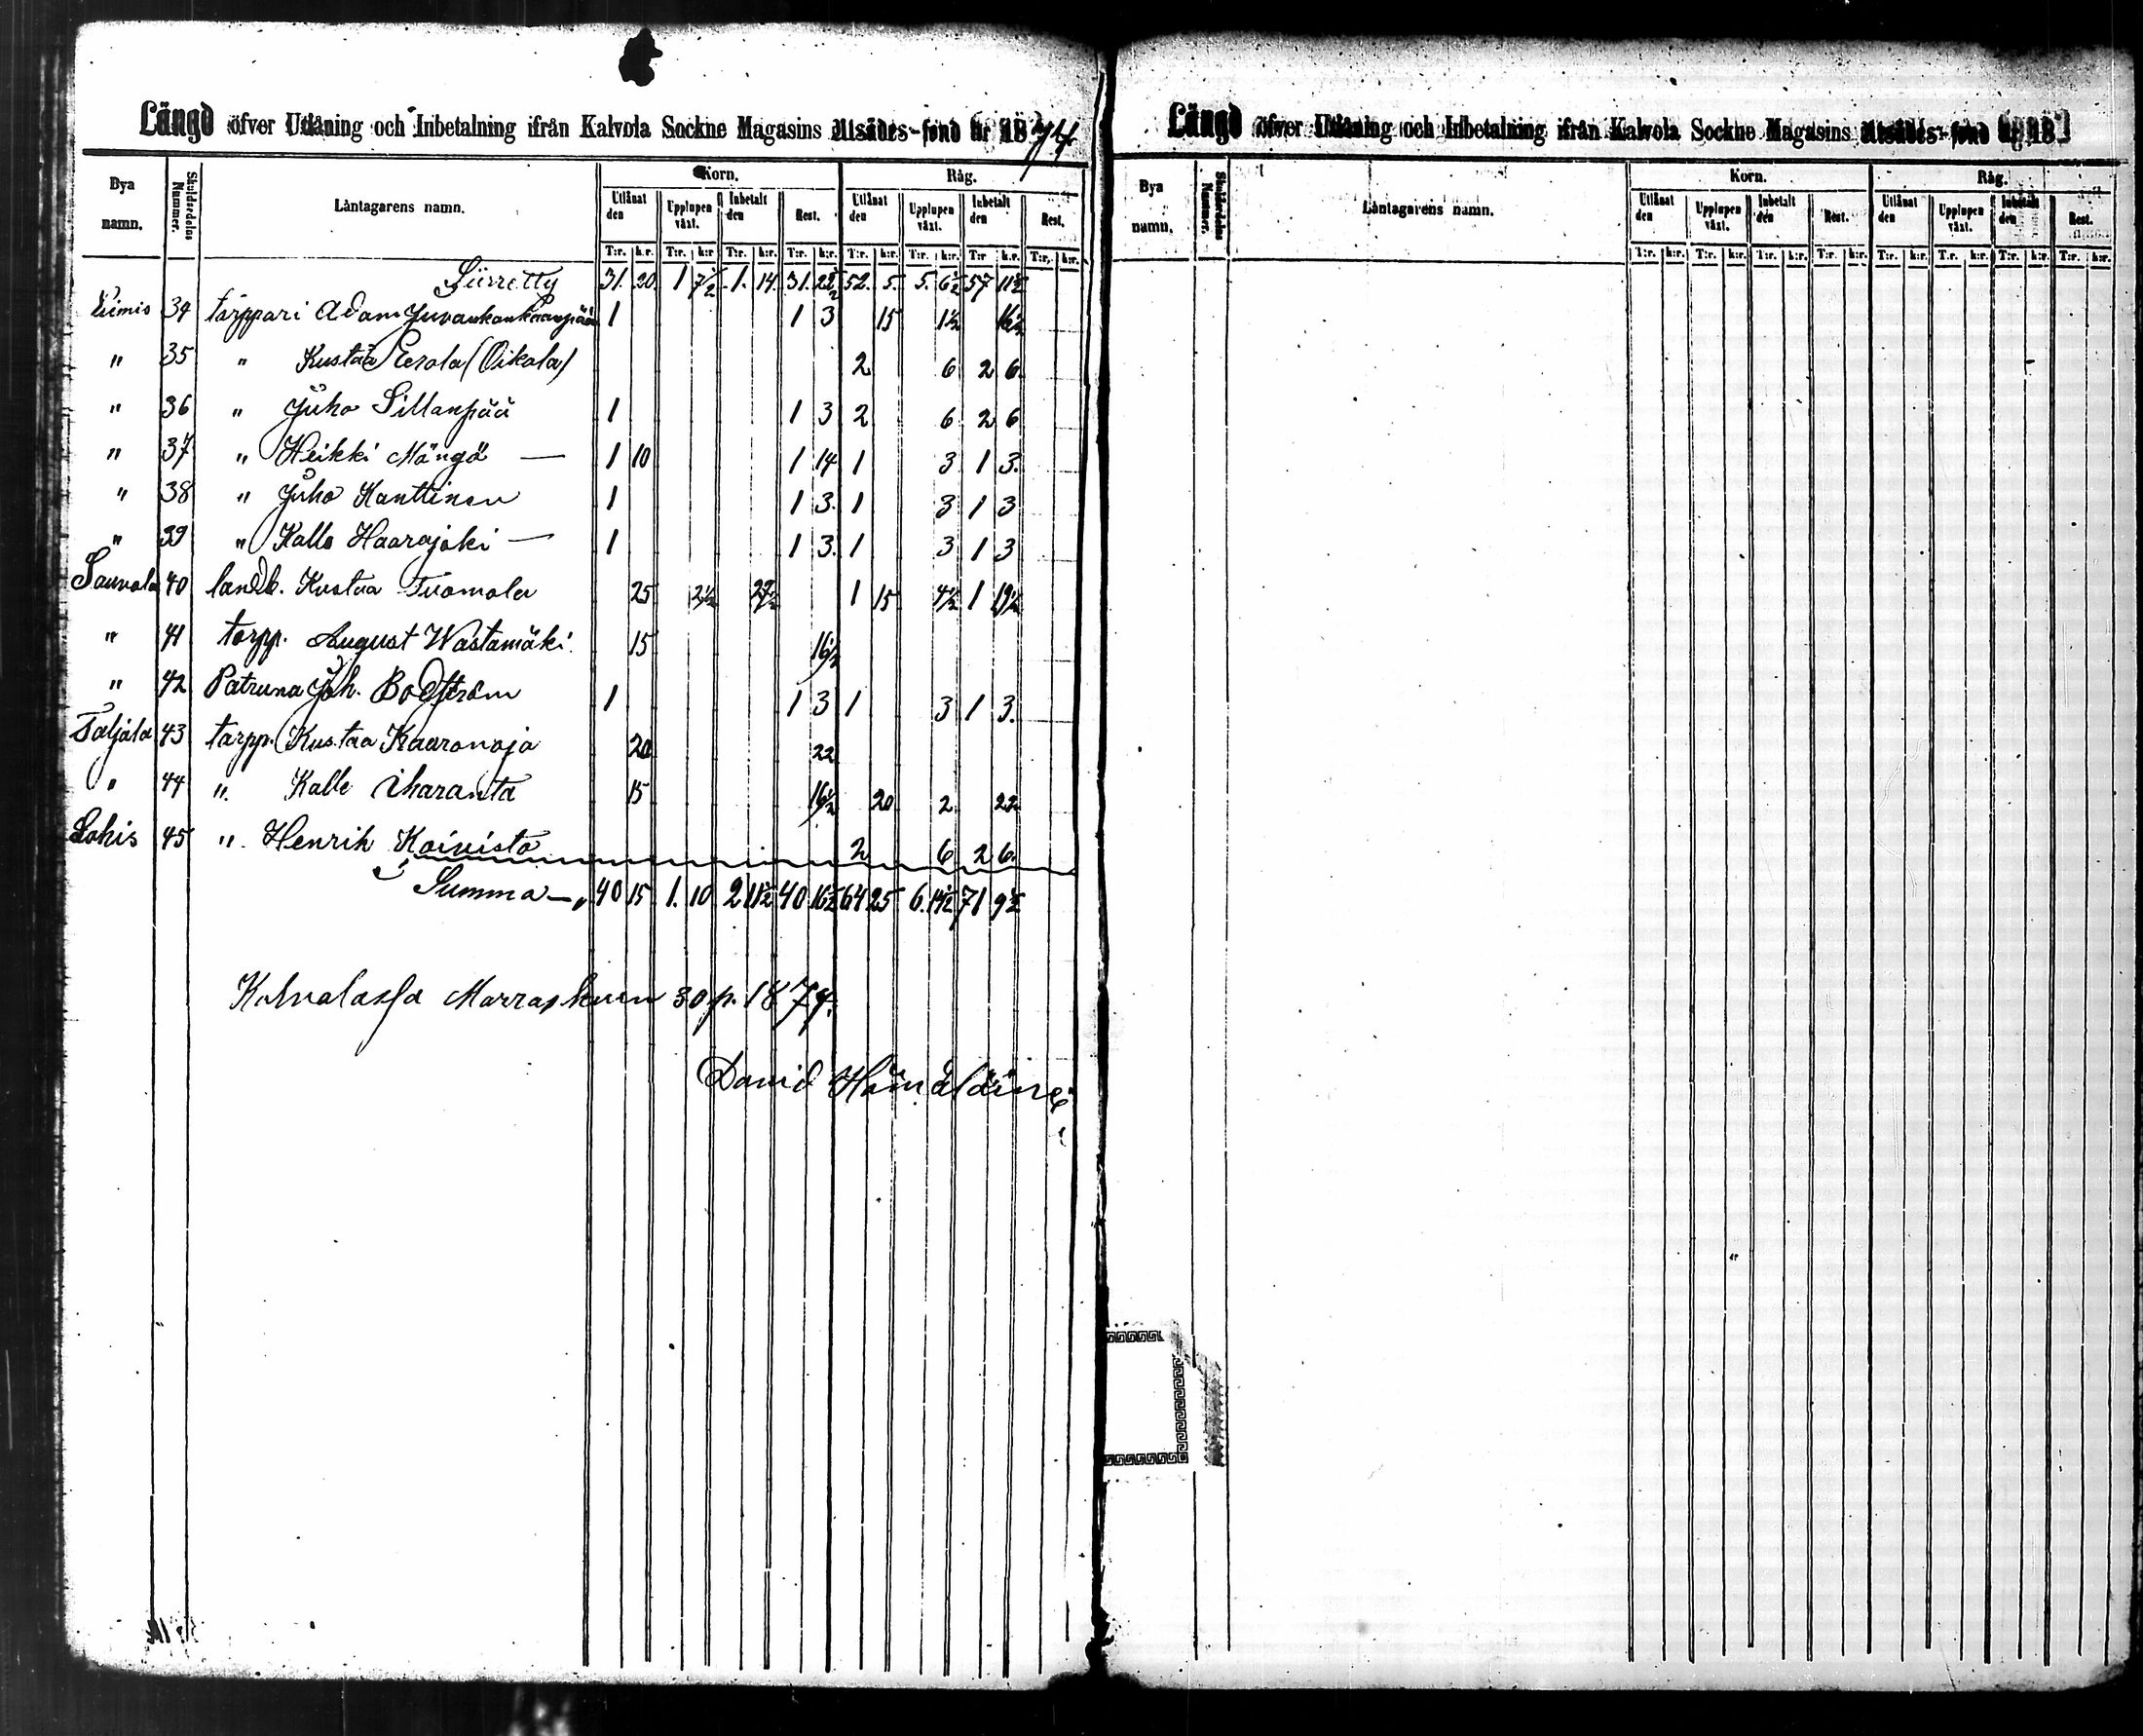 Längd öfver Utlåning och Inbetalning ifrån Kalvola Sockne Magasins Utsädes-fond år 1874
Bya namn. Skuldsedelns Nummer. Låntagarens namn. Korn. Råg.
Utlånat den Upplupen växt. Inbetalt den Rest. Utlånat den Upplupen växt. Inbetalt den Rest.
T:r. k:r. T:r. k:r T:r. k:r. T:r. k:r. T:r. k:r. T:r. k:r. T:r k:r. T:r. k:r.
Siirretty 31. 20. 1 7½ 1. 14. 31. 22½ 52. 5. 5. 6½ 57 11½
34 torppari Adam 1 1 3 15 1½ 16½
" 35 " Kustaa Eerola (Oikola) 2 6 2 6.
" 36 " Juho Sillanpää 1 1 3 2 6 2 6
" 37 " Heikki Mängö — 1 10 1 14 1 3 1 3.
" 38 " Juho Kanttinen 1 1 3. 1 3 1 3
" 39 " Kalle Haarajoki — 1 1 3. 1 3 1 3
Sauvala 40 landb. Kustaa Tuomola 25 2½ 27½ 1 15 4½ 1 19½
" 41 torpp. August Wastamäki 15 16½
" 42 Patruna Joh. Bodström 1 1 3 1 3 1 3.
Taljala 43 torpp. Kustaa Kaaronoja 20 22
" 44 ". Kalle Iharanta 15 16½ 20 2 22
Lahis 45 ". Henrik Koivisto 2 6 2 6.
Summa — 40 15 1. 10 2 11½ 40 16½ 64 25 6. 14½ 71 9½
Kalvolassa Marraskuun 30 p. 1874.
David Hämäläinen
Längd öfver Utlåning och Inbetalning ifrån Kalvola Sockne Magasins Utsädes-fond år 18
Bya namn. Skuldsedelns Nummer. Låntagarens namn. Korn. Råg.
Utlånat den Upplupen växt. Inbetalt den Rest. Utlånat den Upplupen växt. Inbetalt den Rest.
T:r. k:r. T:r. k:r. T:r. k:r. T:r. k:r. T:r. k:r. T:r. k:r. T:r. k:r. T:r. k:r.